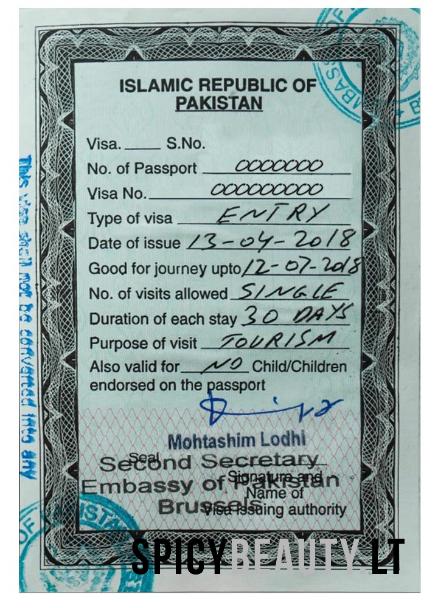 ISLAMIC REPUBLIC OF
PAKISTAN
Visa. ____ S.No.
No. of Passport 0000000
Visa No. 000000000
Type of visa ENTRY
Date of issue 13-04-2018
Good for journey upto 12-07-2018
No. of visits allowed SINGLE
Duration of each stay 30 DAYS
Purpose of visit TOURISM
Also valid for NO Child/Children
endorsed on the passport
Mohtashim Lodhi
Seal
Second Secretary
Signature and
Embassy of Pakistan
Name of
Brussels
Visa issuing authority
This visa shall not be converted into any
EMBASS
OF
ISTAN
SPICYBEAUTY.LT